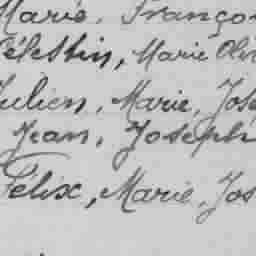 Marie, Franço
Célestin, Marie Oli
Julien, Marie, Jos
Jean, Joseph
Félix, Marie, Jos